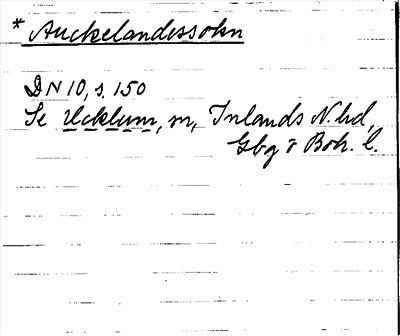 * Auckelandssokn
DN 10, s. 150
Se Ucklum, sn, Inlands N. hd,
Gbg o Boh. l.